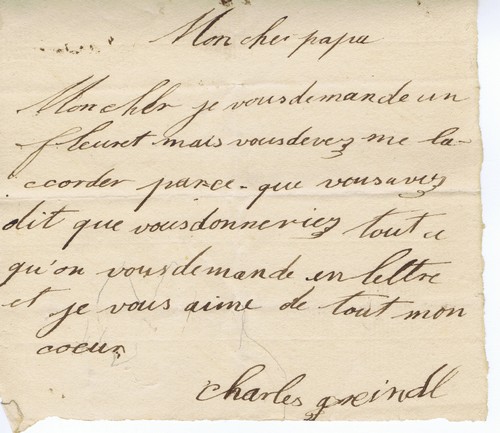 Mon cher papa
Mon cher je vous demande un
fleuret mais vous devez me la-
ccorder parce-que vous avez
dit que vous donneriez tout ce
qu'on vous demande en lettre
et je vous aime de tout mon
coeur
charles greindl